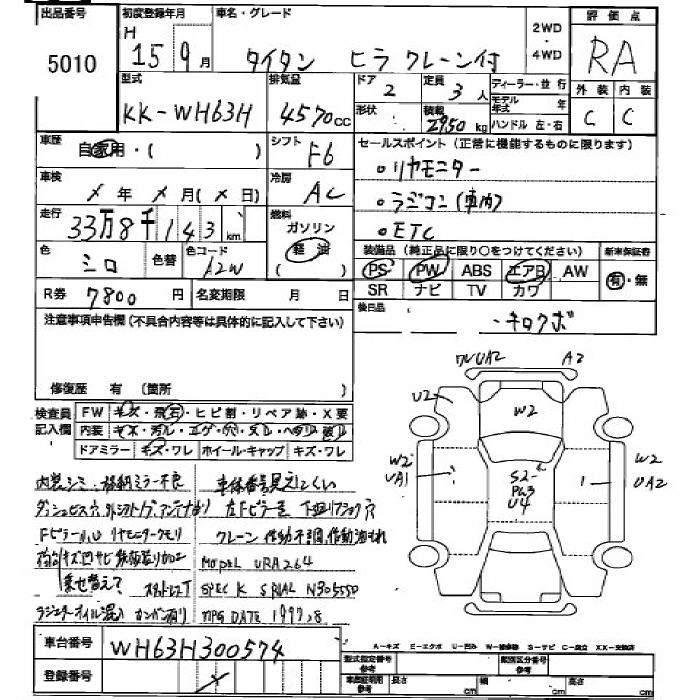 出品番号 初度登録年月 車名・グレード 評価点
5010 H 15年 9月 タイタン ヒラ クレーン付 2WD・4WD RA
型式 排気量 ドア 定員 ディーラー・並行 外装 内装
KK-WH63H 4570cc 2 3人 モデル年式 年 C C
形状 積載 2950kg ハンドル 左・右
車歴 自家用・( ) シフト F6 セールスポイント(正常に機能するものに限ります)
車検 メ年 メ月(メ日) 冷房 AC ・リヤモニター
走行 33万8千143km 燃料 ガソリン 軽油 ( ) ・ラジコン(車内)
・ETC
色 シロ 色替 色コード A2W 装備品(純正品に限り○をつけてください) 新車保証書
PS PW ABS エアB AW 有・無
SR ナビ TV カワ
R券 7800円 名変期限 月 日 後日品 ・キロクボ
注意事項申告欄(不具合内容等は具体的に記入して下さい)
修復歴 有 (箇所 )
検査員記入欄 FW キズ・飛石・ヒビ割・リペア跡・X要
内装 キズ・汚レ・コゲ・穴・ヌレ・ヘタリ・破レ
ドアミラー キズ・ワレ ホイール・キャップ キズ・ワレ
ワレUA2 A2
U2 W2
W2 UA1 S2 U4 1 W2 UA2
内装シミ・格納ミラー不良 車体番号見えにくい
クレーン作動不調、作動油もれ
MODEL URA264
SPEC K SRIAL N305550
ラジエターオイル混入 カンバン有り MFG DATE 1997.8
車台番号 WH63H300574
登録番号 メ
A-キズ E-エクボ U-凹み W-補修跡 S-サビ C-腐立 XX-交換済
型式指定番号 類別区分番号
車庫証明用参考 長さ cm 幅 cm 高さ cm